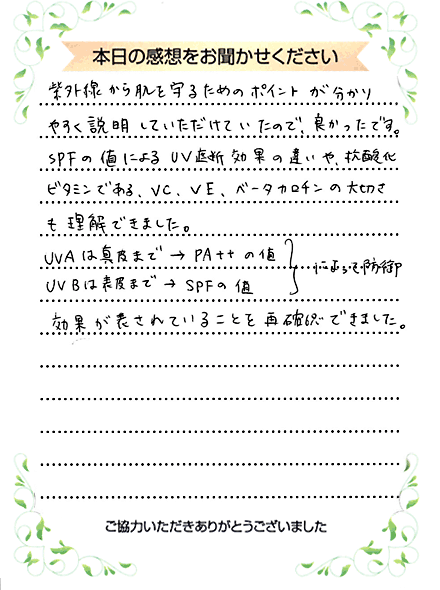 本日の感想をお聞かせください
紫外線から肌を守るためのポイントが分かり
やすく説明していただけていたので、良かったです。
SPFの値によるUV遮断効果の違いや、抗酸化
ビタミンである、VC、VE、ベータカロチンの大切さ
も理解できました。
UVAは真皮まで→PA++の値
UVBは表皮まで→SPFの値
によって防御
効果が表されていることを再確認できました。
ご協力いただきありがとうございました